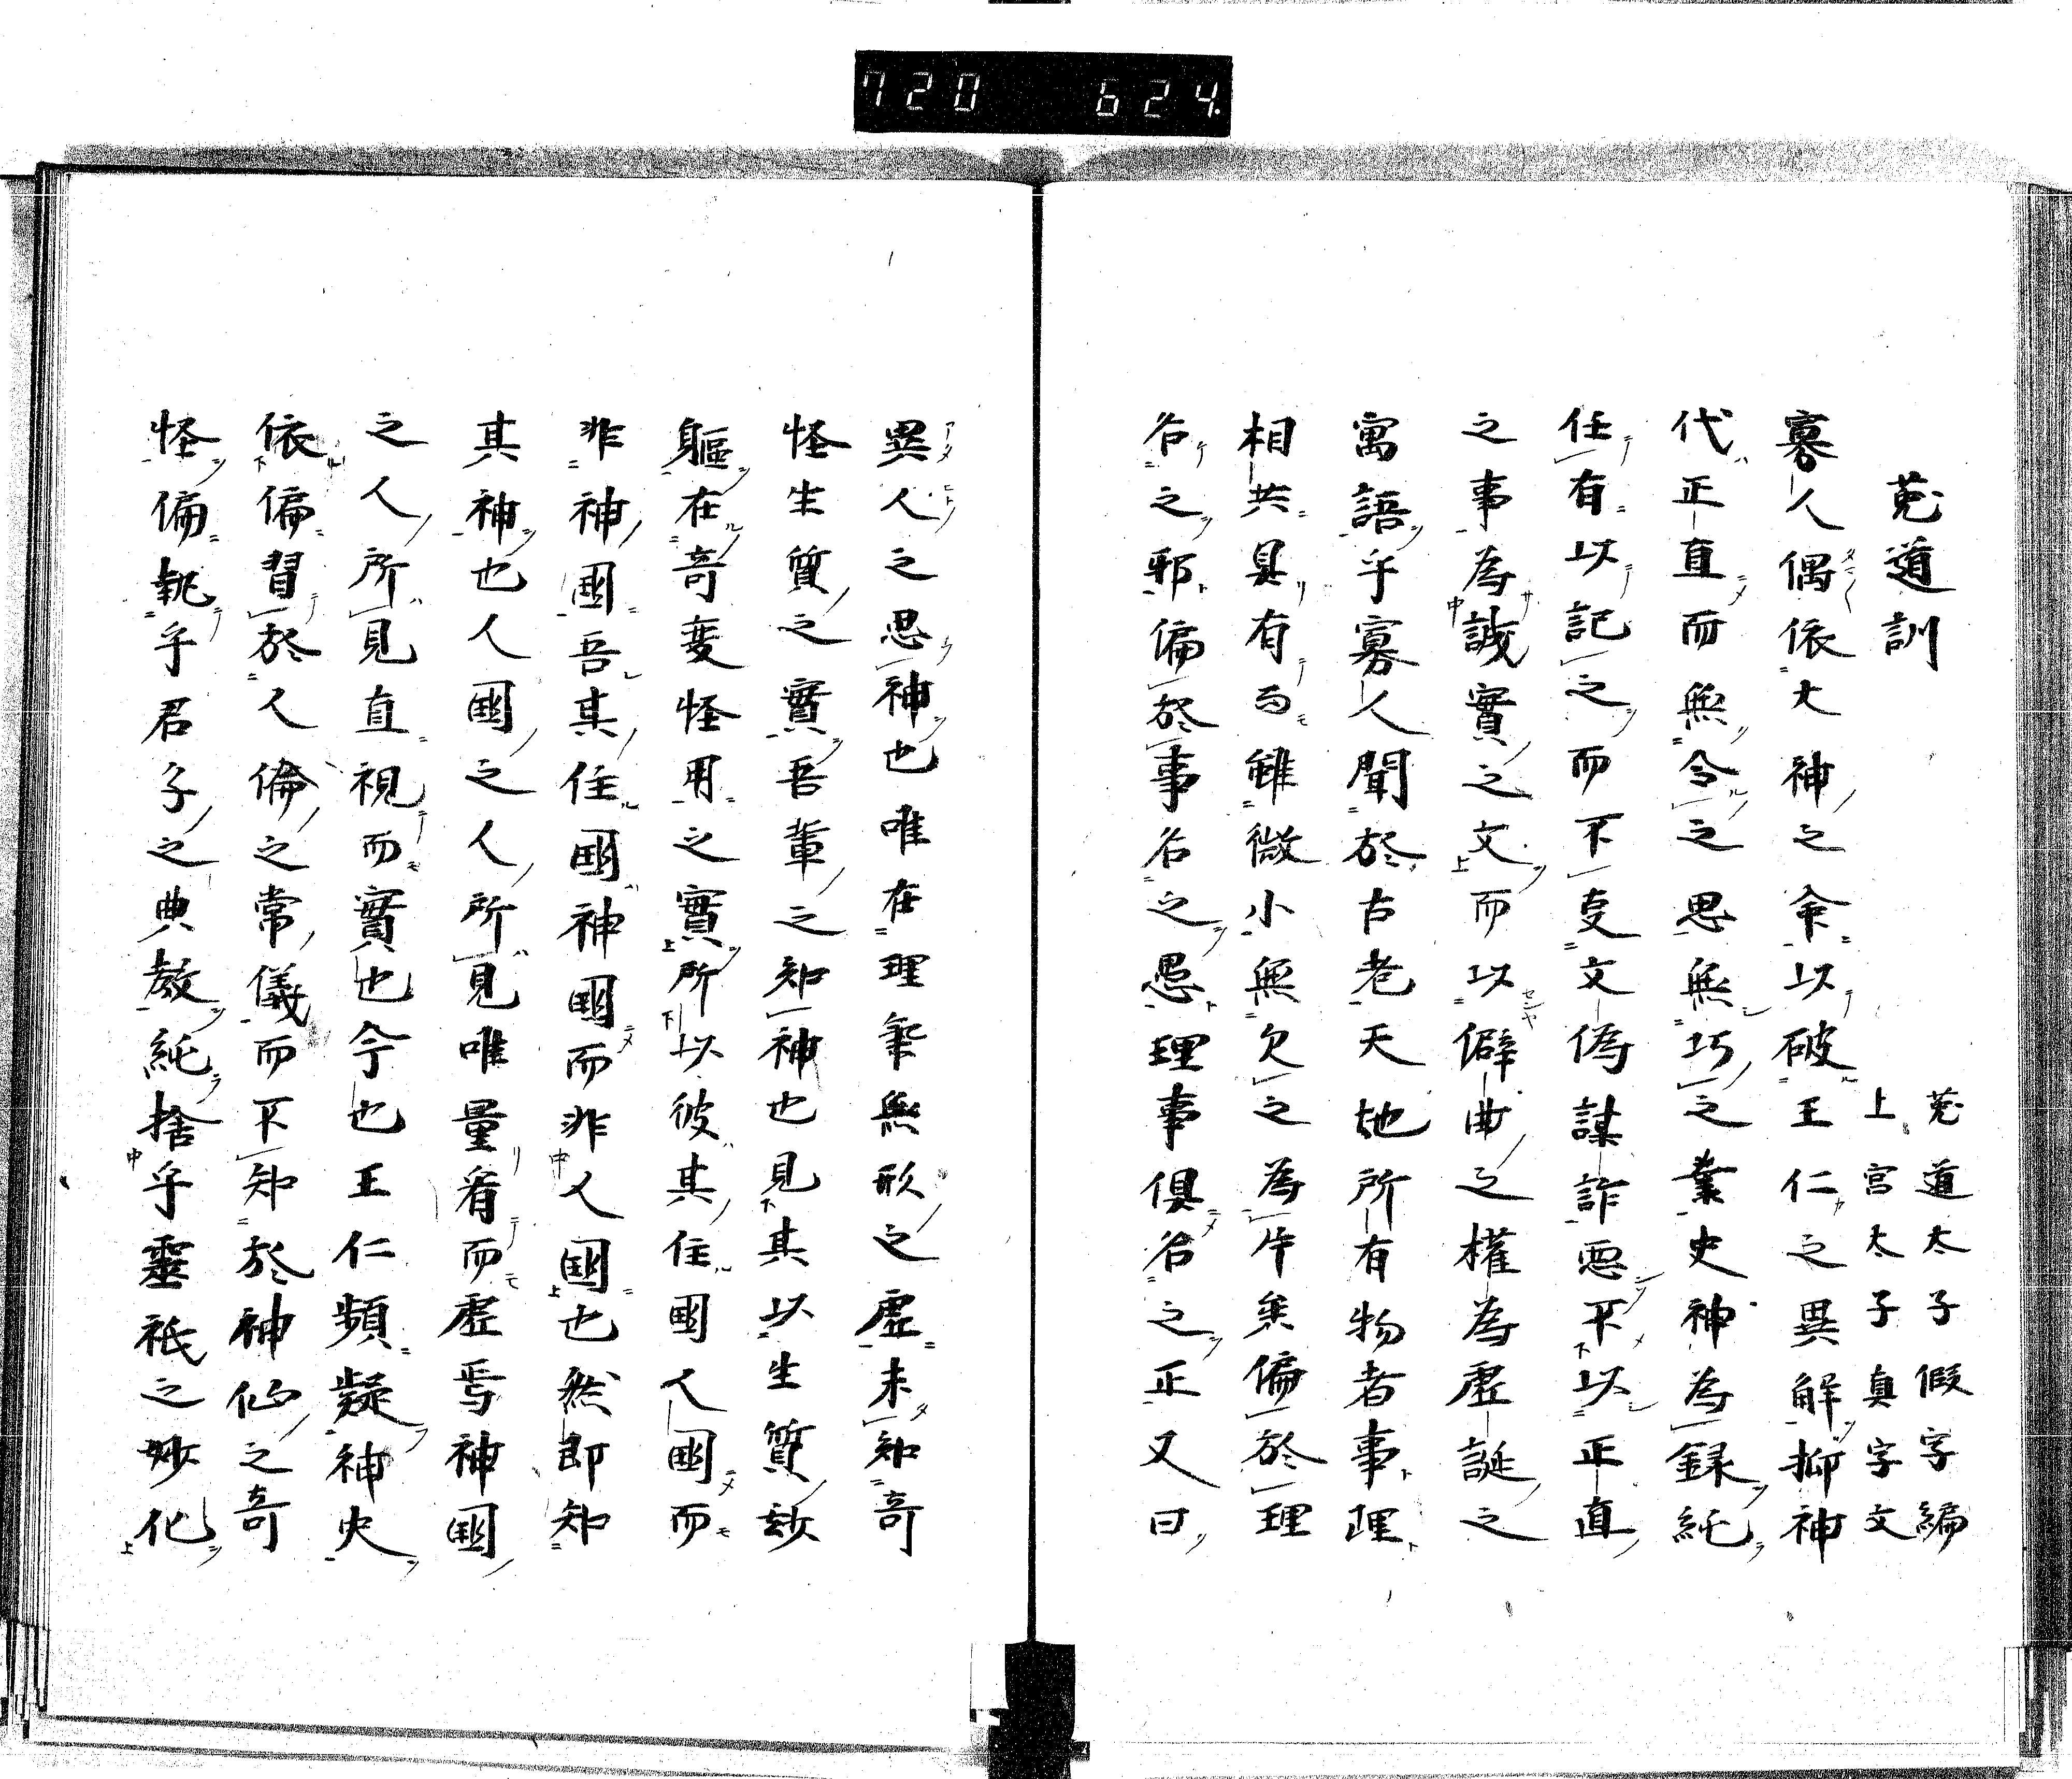 720 624
菟道訓
菟道太子假字編
上宮太子真字文
寡人偶依大神之命以破王仁之異解抑神
代正直而無令之思無巧之業史神為録純
任有以記之而不変文偽謀詐惡不以正直
之事為誠實之文而以僻曲之權為虛誕之
寓語乎寡人聞於古老天地所有物者事理
相共具有而雖微小無欠之為片矣偏於理
名之邪偏於事名之愚理事俱名之正又曰
異人之思神也唯在理氣無形之虛未知奇
怪生質之實吾輩之知神也見其以生質故
軀在奇変怪用之實所以彼其住國人國而
非神國吾其住國神國而非人國也然即知
其神也人國之人所見唯量肴而虛焉神國
之人所見直視而實也今也王仁頻疑神史
依偏習於人倫之常儀而不知於神仙之奇
怪偏執乎君子之典教純捨乎靈祇之妙化